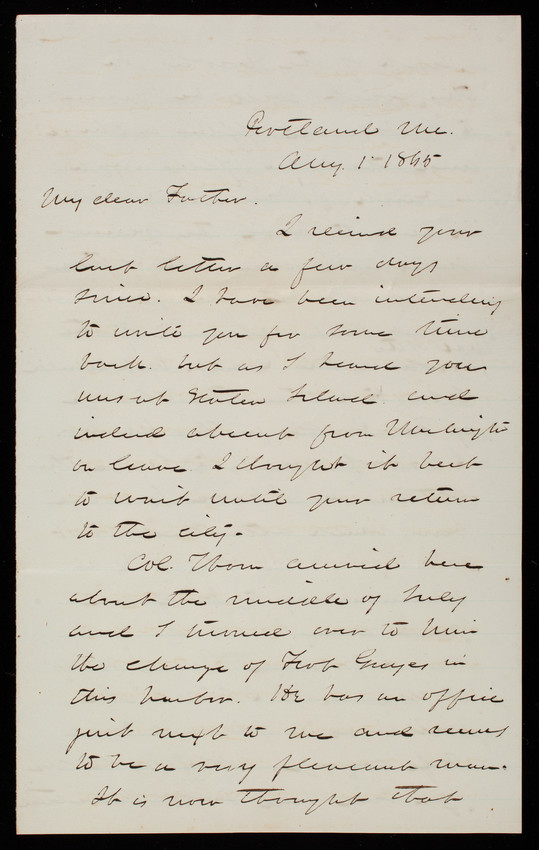 Portland Me.
Aug. 1 1865
My dear Father.
I received your
last letter a few days
since. I have been intending
to write you for some time
back. but as I heard you
was at Staten Island and
indeed absent from Washington
on leave I thought it best
to wait until your return
to the city.
Col. Thom arrived here
about the middle of July
and I turned over to him
the charge of Fort Gorges in
this harbor. He has an office
just next to me and seems
to be a very pleasant man.
It is now thought that